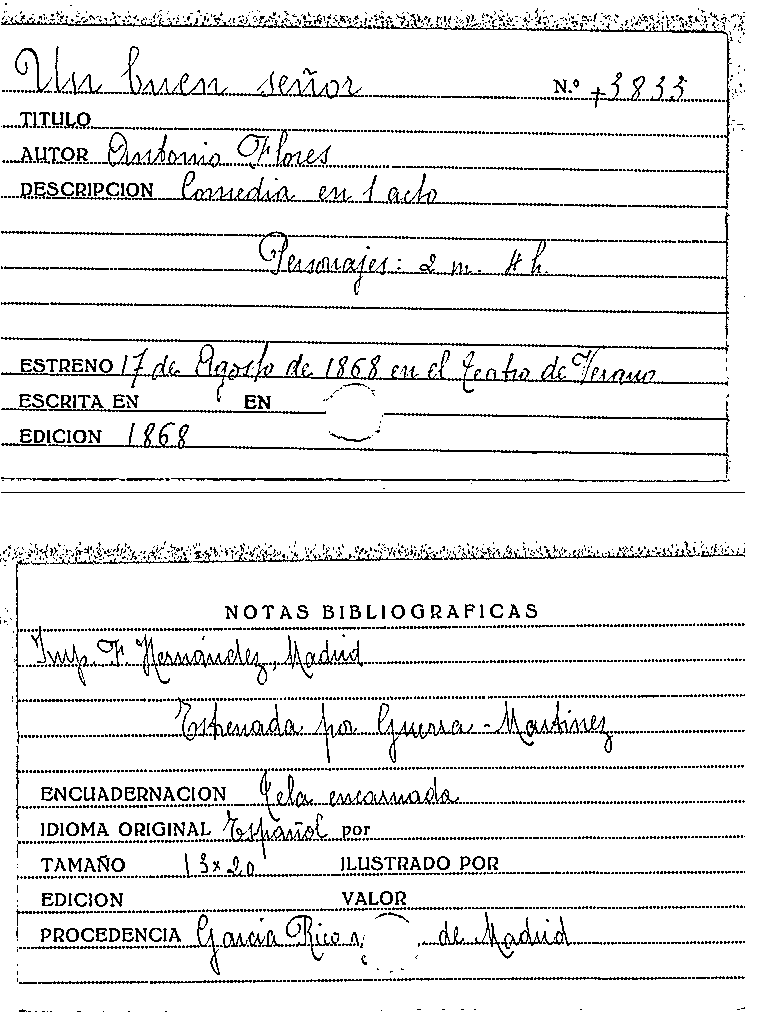 Un buen señor N.º +3833
TITULO
AUTOR Antonio Flores
DESCRIPCION Comedia en 1 acto
Personajes: 2 m. 4 h.
ESTRENO 17 de Agosto de 1868 en el teatro de Verano
ESCRITA EN EN
EDICION 1868
NOTAS BIBLIOGRAFICAS
Imp. F. Hernández, Madrid
Estrenada por Guerra-Martinez
ENCUADERNACION Tela encarnada
IDIOMA ORIGINAL Español por
TAMAÑO 13x20 ILUSTRADO POR
EDICION VALOR
PROCEDENCIA Garcia Rico de Madrid